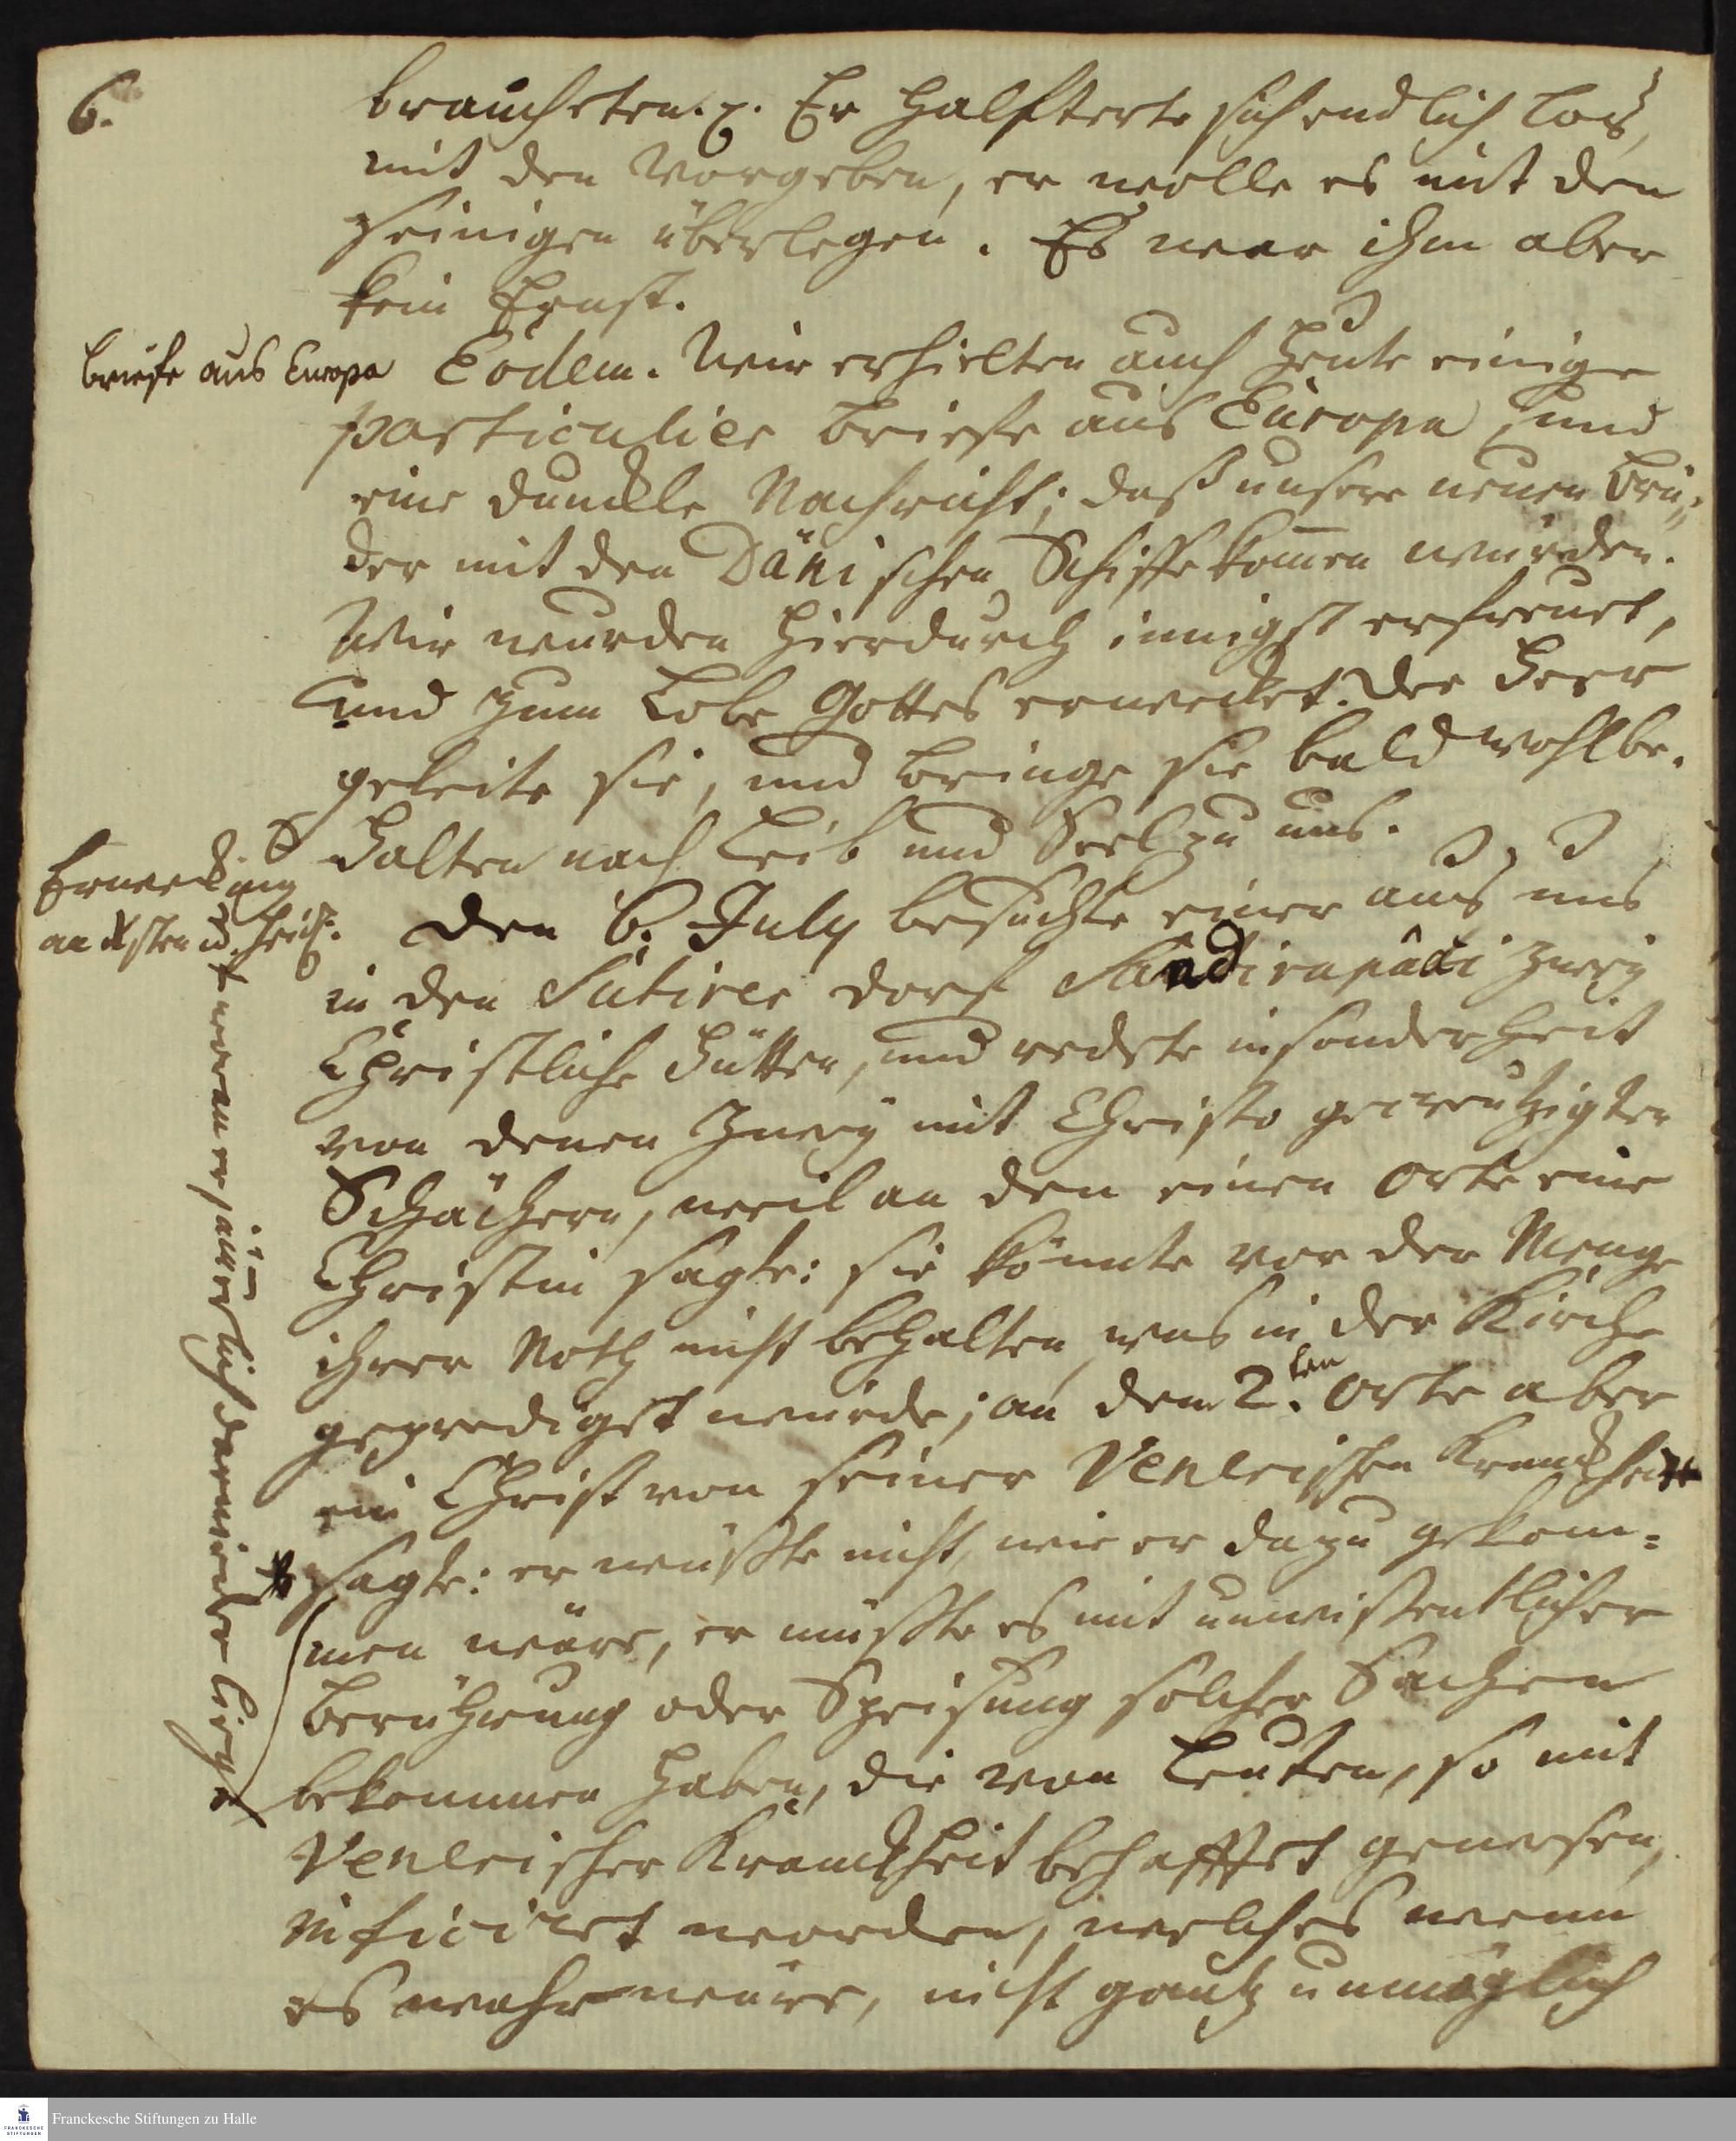 6.
brauchten. p. Er halfterte sich endlich los,
mit den Vorgeben, er wolle es mit den
seinigen überlegen. Es war ihm aber
kein Ernst.
briefe aus Europa
Eodem. Wir erhielten auch heute einige
particulier briefe aus Europa, und
eine dunckle Nachricht; daß unsere neuen Brü-
der mit den Dänischen Schiffe kom̄en würden.
Wir wurden hierdurch innigst erfreuet,
und zum Lobe Gottes erwecket. Der Herr
geleite sie, und bringe sie bald wohlbe-
halten nach Leib und Seel zu uns.
Erweckung
an Xsten u. Heid.
den 6. July besuchte einer aus uns
in den Sutirer dorf Sandirapâdi zwey
Christliche Hütten, und redete insonderheit
von denen Zwey mit Christo gecreutzigten
Schächern, weil an den einen Orte eine
Christin sagte: sie könnte vor der Menge
ihrer Noth nicht behalten, was in der Kirche
geprediget würde; an dem 2.ten Orte aber
ein Christ von seiner Venerischen Kranckheit
woran er jäm̄erlich darnieder liegt
sagte: er wüßte nicht, wie er dazu gekom-
men wäre, er müßte es mit unwißentlicher
berührung oder Speisung solcher Sachen
bekommen haben, die von Leuten, so mit
Venerischer Kranckheit behafftet gewesen,
inficiret worden, welches wenn
es wahr wäre, nicht gantz unmöglich
Franckesche Stiftungen zu Halle
FRANCKESCHE
STIFTUNGEN